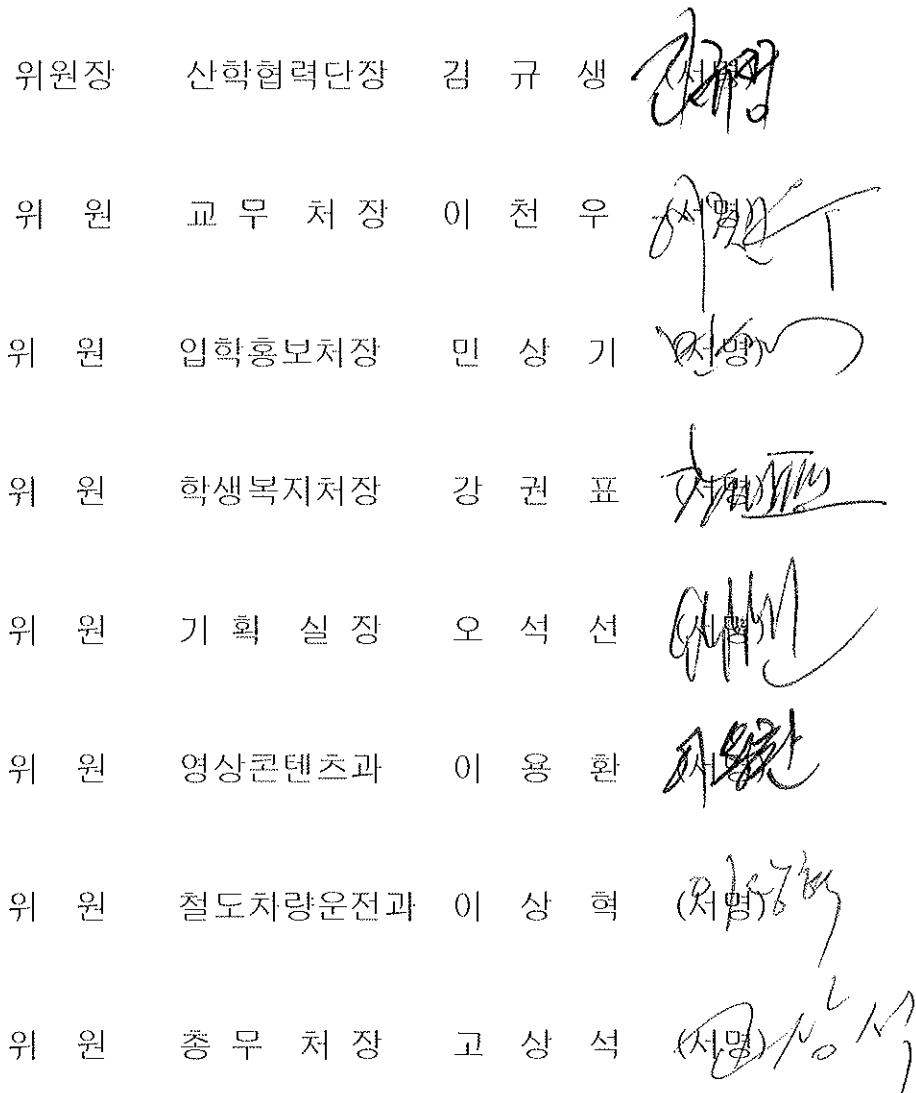 위원장 산학협력단장 김 규 생 (서명)
위 원 교 무 처 장 이 천 우 (서명)
위 원 입학홍보처장 민 상 기 (서명)
위 원 학생복지처장 강 권 표 (서명)
위 원 기 획 실 장 오 석 선 (서명)
위 원 영상콘텐츠과 이 용 환 (서명)
위 원 철도차량운전과 이 상 혁 (서명)
위 원 총 무 처 장 고 상 석 (서명)